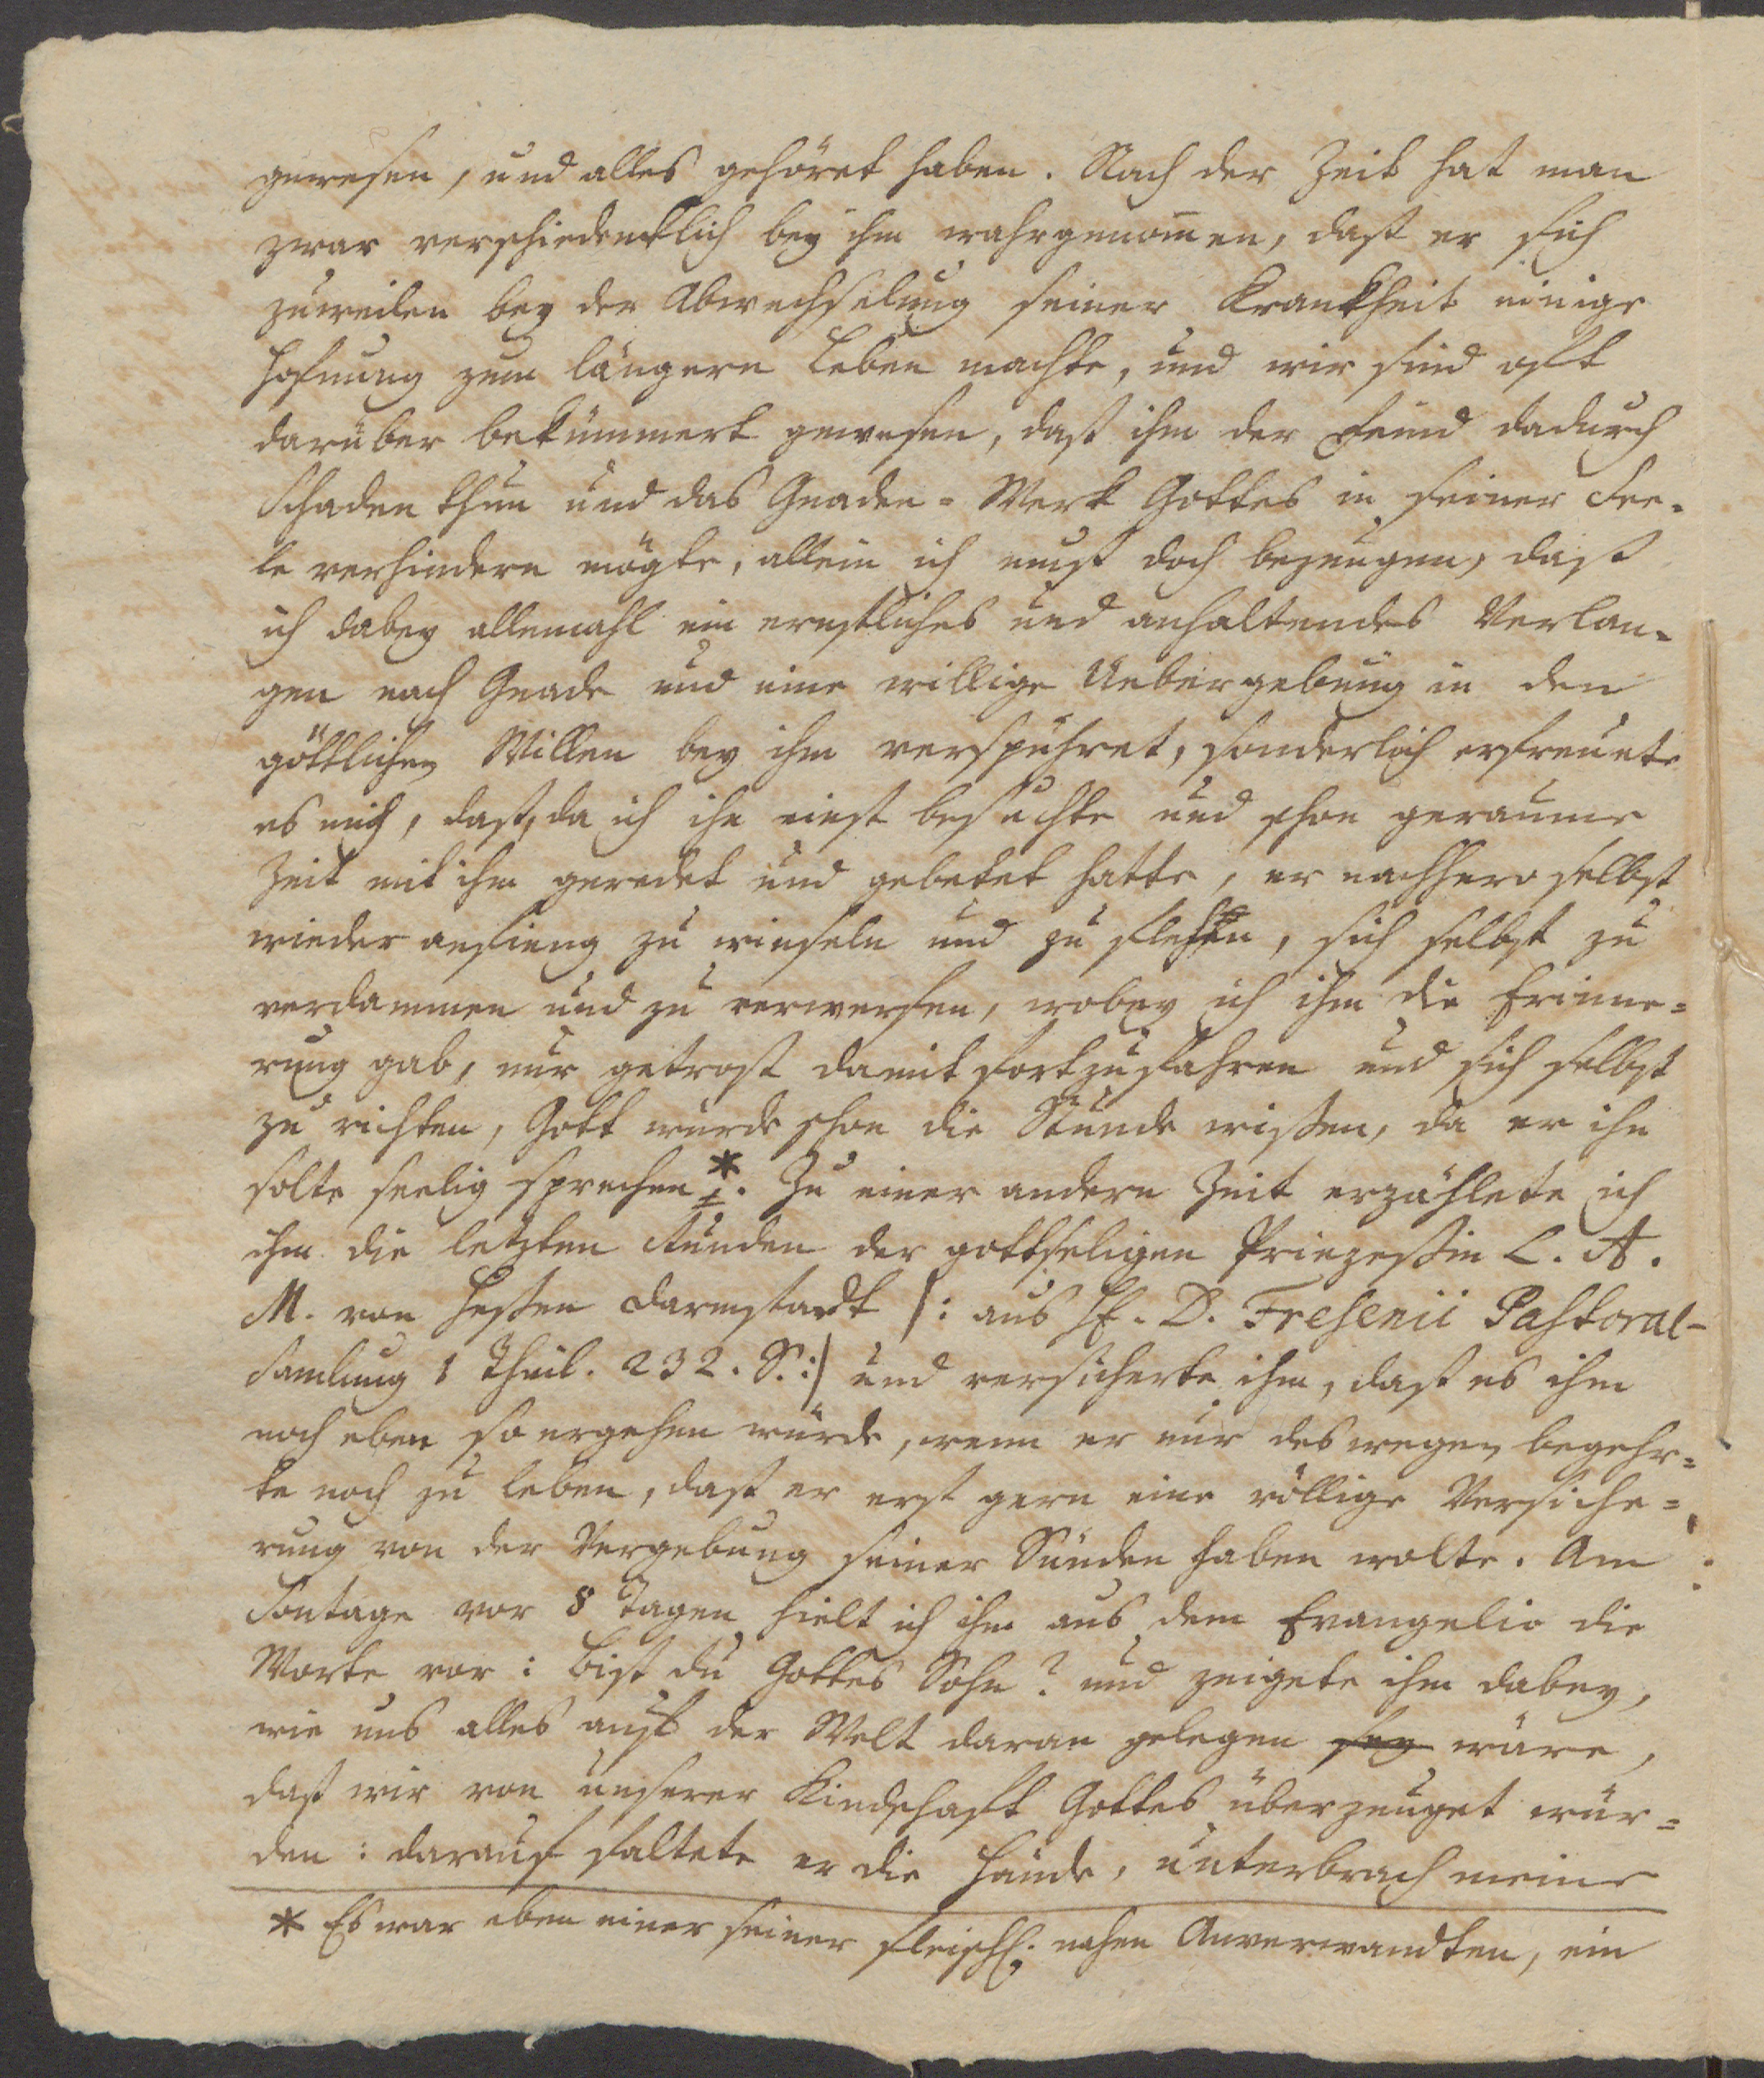 gewesen, und alles gehöret haben. Nach der Zeit hat man
zwar verschiedentlich bey ihm wahrgenom̄en, dasz er sich
zuweilen bey der Abwechselung seiner Krankheit einige
Hofnung zum längern Leben machte, und wir sind oft
darüber bekümmert gewesen, dasz ihm der Feind dadurch
Schaden thun und das Gnaden=Werk Gottes in seiner See=
le verhindern mögte, allein ich musz doch bezeugen, dasz
ich dabey allemahl ein ernstliches und anhaltendes Verlan=
gen nach Gnade und eine willige Uebergebung in den
göttlichen Willen bey ihm verspühret, sonderlich erfreuete
es mich, dasz, da ich ihn einst besuchte und schon geraume
Zeit mit ihm geredet und gebetet hatte, er nachhero selbst
wieder anfieng zu winseln und zu flehen, sich selbst zu
verdammen und zu verwerfen, wobey ich ihm die Erinne=
rung gab, nur getrost damit fortzufahren und sich selbst
zu richten, Gott würde schon die Stunde wiszen, da er ihn
solte seelig sprechen *. Zu einer andern Zeit erzählete ich
ihm die letzten Stunden der gottseligen Prinzeszin L. A.
M. von Heszen Darmstadt /: aus H. D. Fresenii Pastoral-
Samlung 1 Theil. 232. S. :/ und versicherte ihm, dasz es ihm
noch eben so ergehen würde, wenn er nur deswegen begehr=
te noch zu leben, dasz er erst gern eine völlige Versiche=
rung von der Vergebung seiner Sünden haben wolte. Am
Sontage vor 8 Tagen hielt ich ihm aus dem Evangelio die
Worte vor: bist du Gottes Sohn? und zeigete ihm dabey,
wie uns alles auf der Welt daran gelegen sey wäre,
dasz wir von unserer Kindschaft Gottes überzeuget wür=
den: darauf faltete er die Hände, unterbrach meine
* Es war eben einer seiner fleischl. nahen Anverwandten, ein